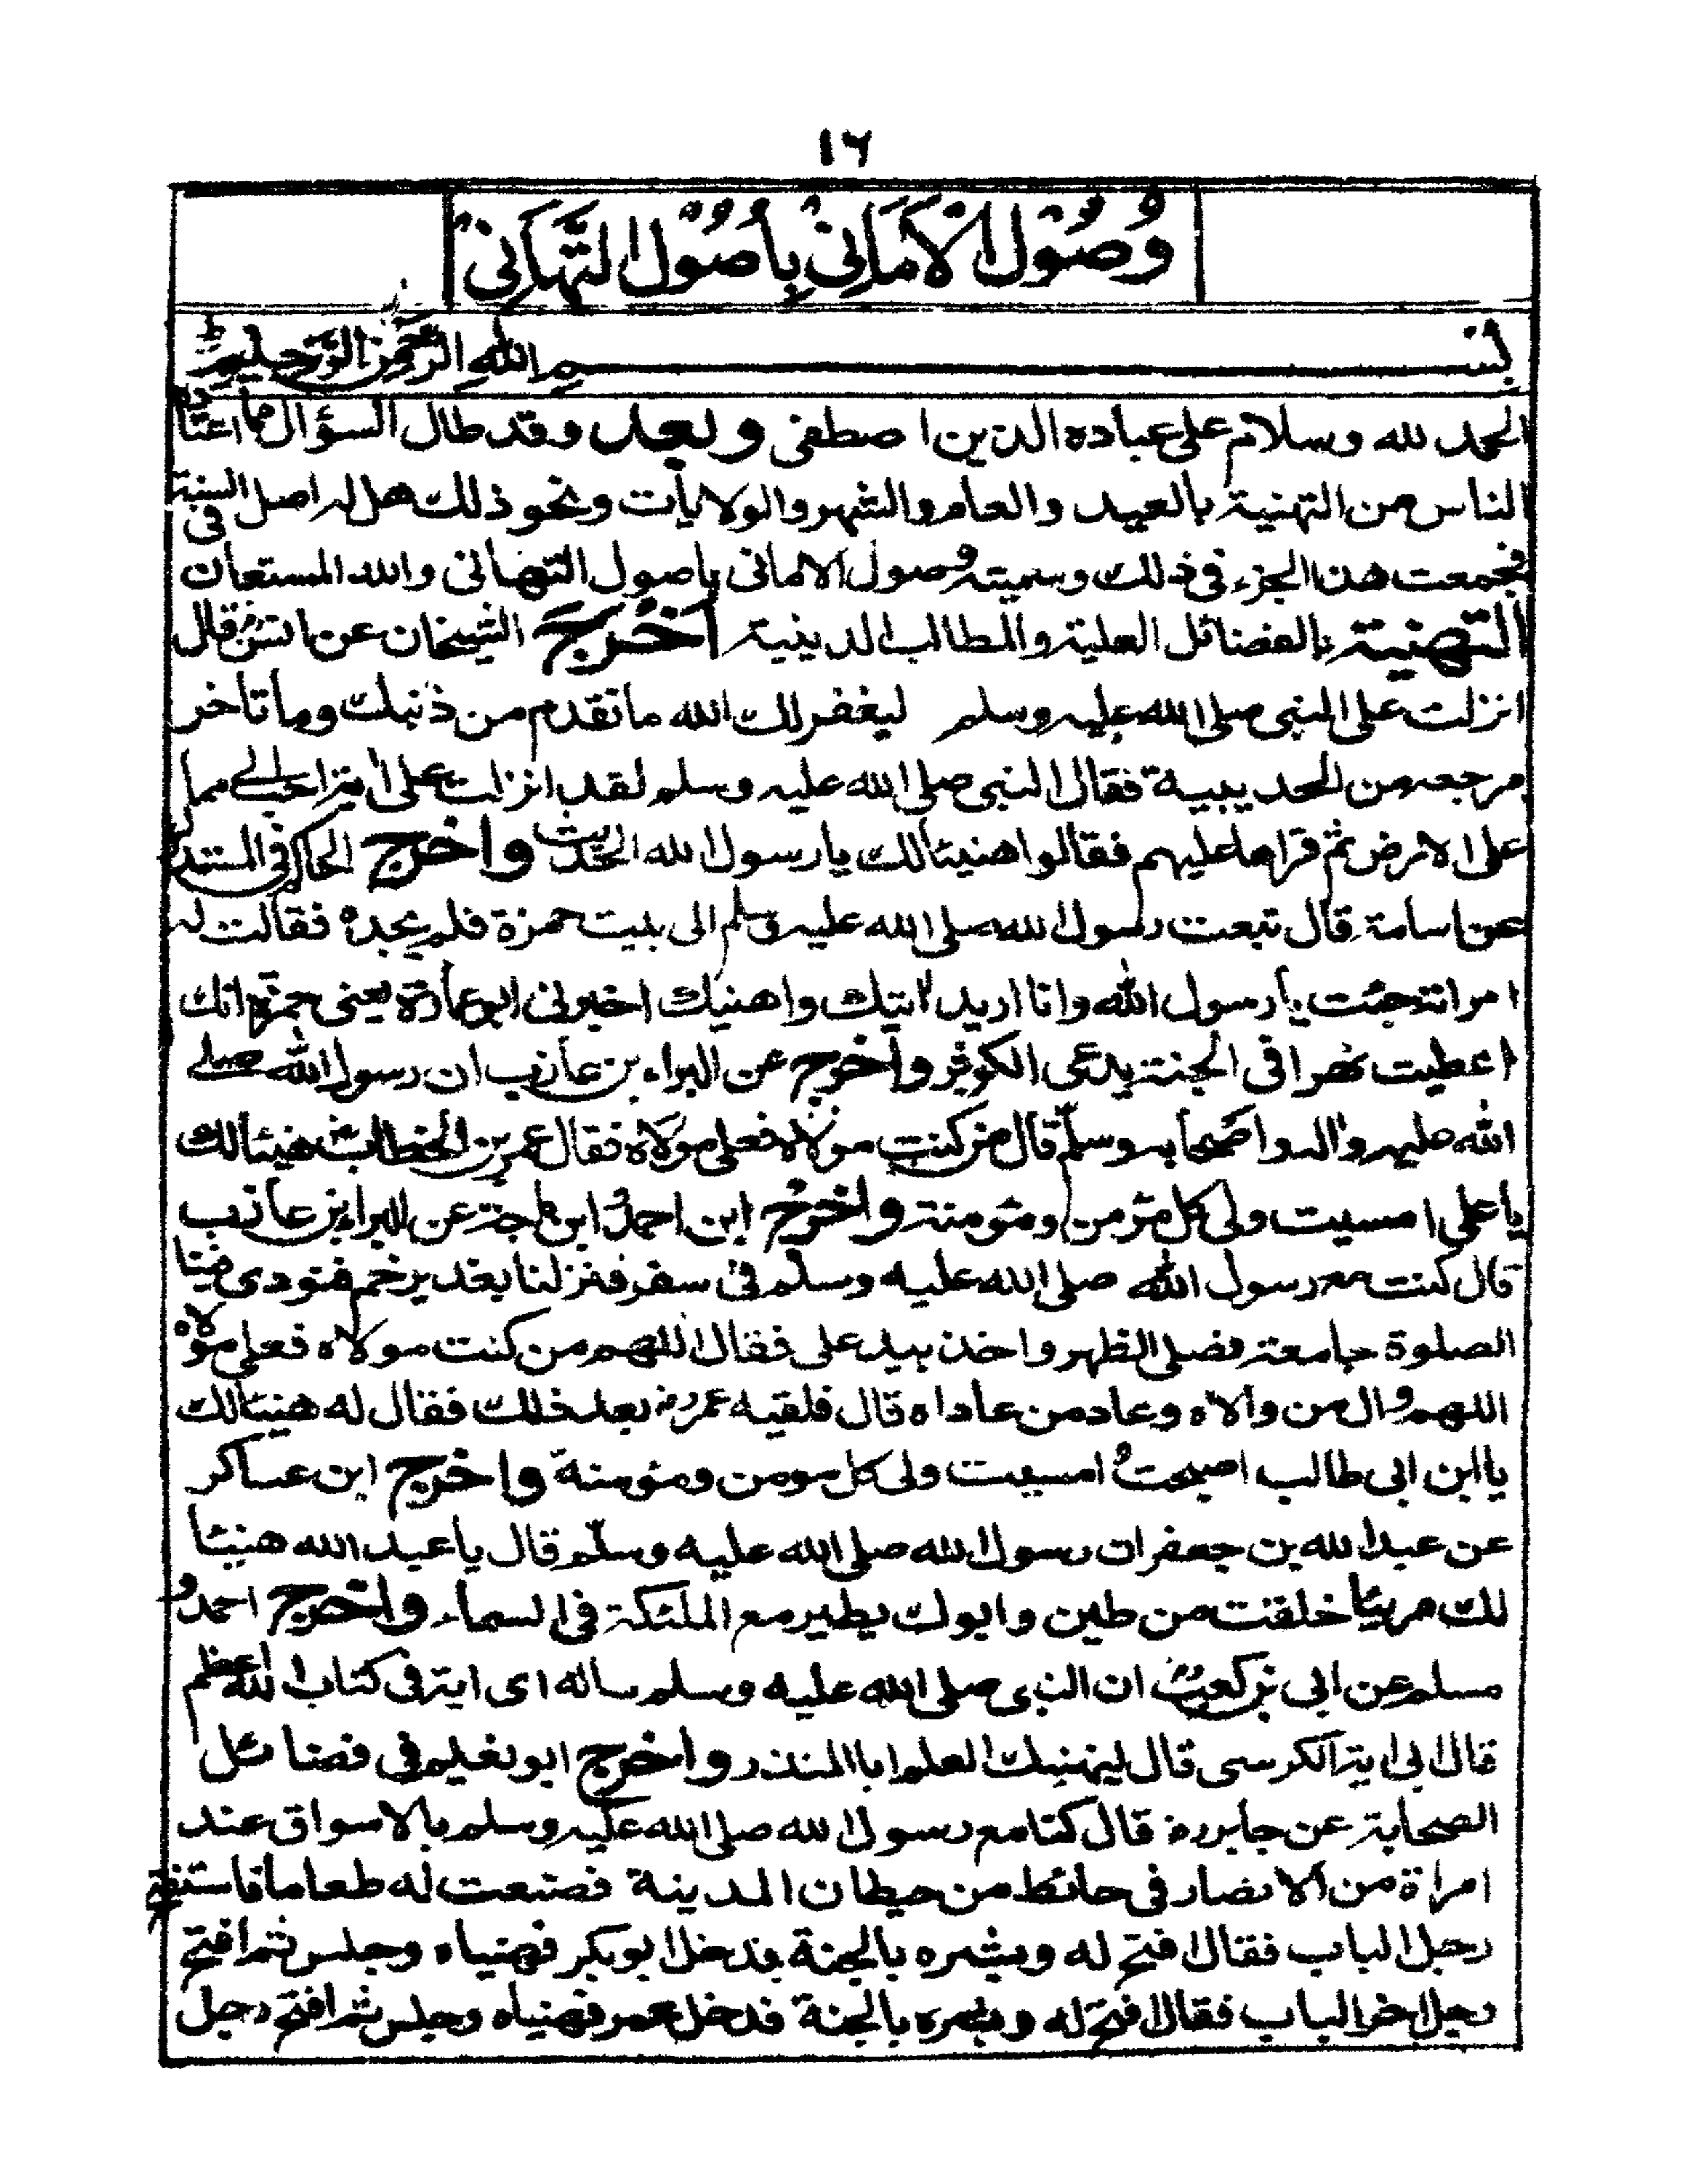 ١٦
وُصُوْلُ الْاَمَانِیْ بِاُصُوْلِ التَّهَانِیْ
بسم الله الرحمن الرحيم
الحمد لله وسلام على عباده الذين اصطفى وبعد وقد طال السؤال عما اعتاده
الناس من التهنية بالعيد والعام والشهر والولايات ونحو ذلك هل له اصل فى السنة
فجمعت هذا الجزء فى ذلك وسميته وصول الامانى باصول التهانى والله المستعان
التهنية بالفضائل العلية والمطالب الدينية اخرج الشيخان عن انس رض قال
انزلت على النبى صلى الله عليه وسلم ليغفر لك الله ما تقدم من ذنبك وما تاخر
مرجعه من الحديبية فقال النبى صلى الله عليه وسلم لقد انزلت على اية احب الے مما
على الارض ثم قراها عليهم فقالوا هنيئالك يا رسول الله الحديث واخرج الحاكم فى المستدرك
عن اسامة قال تبعت رسول الله صلى الله عليه وسلم الى بيت حمزة فلم يجده فقالت له
امراته جئت يا رسول الله وانا اريد اتيك واهنيك اخبرنى ابو عمارة يعنى حمزة انك
اعطيت نهرا فى الجنة يدعى الكوثر واخرج عن البراء بن عازب ان رسول الله صلے
الله عليه واله واصحابه وسلم قال من كنت مولاه فعلى مولاه فقال عمر بن الخطاب رض هنيئالك
يا على امسيت ولى كل مؤمن ومؤمنة واخرج ابن احمد ابن ماجة عن البراء بن عازب
قال كنت مع رسول الله صلى الله عليه وسلم فى سفر فنزلنا بغدير خم فنودى فينا
الصلوة جامعة فصلى الظهر واخذ بيد على فقال اللهم من كنت مولاه فعلى مولاه
اللهم وال من والاه وعاد من عاداه قال فلقيه عمر رض بعد ذلك فقال له هنيئالك
يا ابن ابى طالب اصبحت و امسيت ولى كل مومن ومؤمنة واخرج ابن عساكر
عن عبد الله بن جعفر ان رسول الله صلى الله عليه وسلم قال يا عبد الله هنيئا
لك مريئا خلقت من طين وابوك يطير مع الملئكة فى السماء واخرج احمد و
مسلم عن ابى بن كعب رض ان النبى صلى الله عليه وسلم ساله اى اية فى كتاب الله اعظم
قال ابى اية الكرسى قال ليهنيك العلم ابا المنذر واخرج ابو نعيم فى فضائل
الصحابة عن جابر رض قال كنا مع رسول الله صلى الله عليه وسلم بالاسواق عند
امراة من الانصار فى حائط من حيطان المدينة فصنعت له طعاما فاستفتح
رجل الباب فقال افتح له وبشره بالجنة فدخل ابوبكر فهنياه وجلس ثم افتح
رجل اخر الباب فقال افتح له وبشره بالجنة فدخل عمر فهنياه وجلس ثم افتح رجل